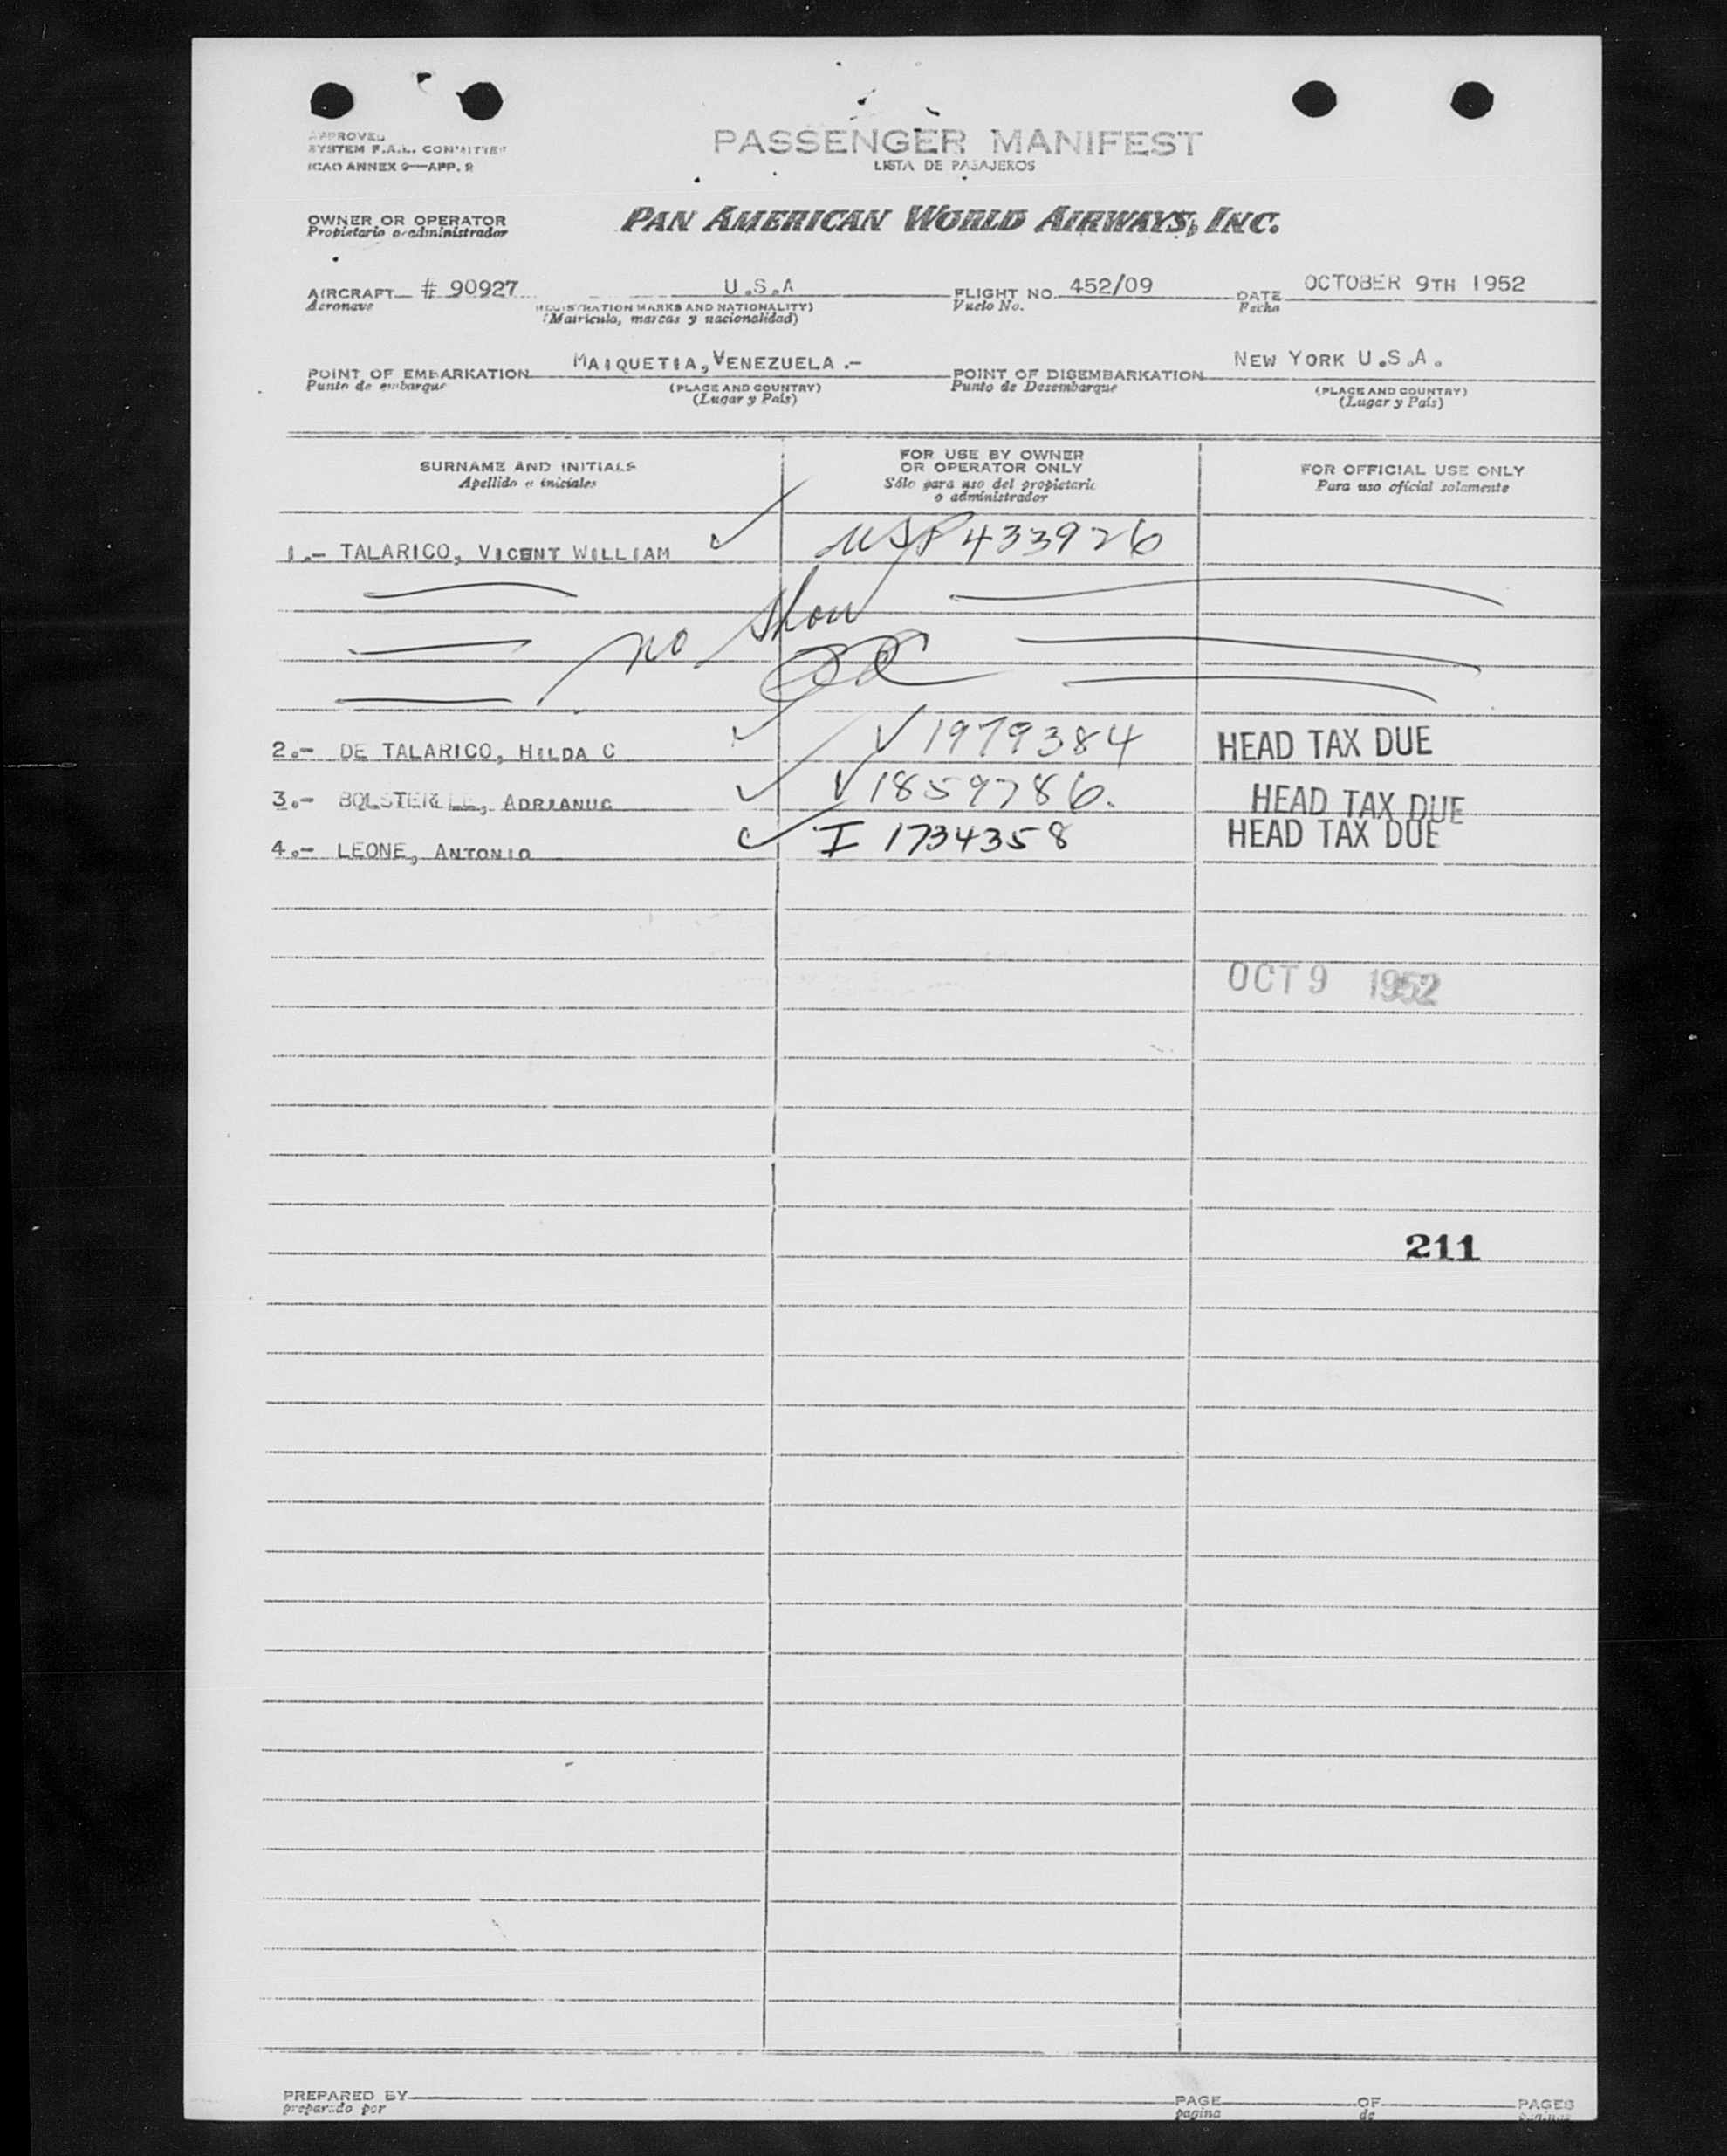 APPROVED
SYSTEM F.A.L. COMMITTEE
ICAO ANNEX 9—APP. 2
PASSENGER MANIFEST
LISTA DE PASAJEROS
OWNER OR OPERATOR
Propietario o administrador
PAN AMERICAN WORLD AIRWAYS, INC.
AIRCRAFT # 90927 U.S.A FLIGHT NO. 452/09 DATE OCTOBER 9TH 1952
Aeronave (REGISTRATION MARKS AND NATIONALITY) Vuelo No. Fecha
(Matrícula, marcas y nacionalidad)
POINT OF EMBARKATION MAIQUETIA, VENEZUELA .- POINT OF DISEMBARKATION NEW YORK U.S.A.
Punto de embarque (PLACE AND COUNTRY) Punto de Desembarque (PLACE AND COUNTRY)
(Lugar y País) (Lugar y País)
SURNAME AND INITIALS
Apellido e iniciales
FOR USE BY OWNER
OR OPERATOR ONLY
Sólo para uso del propietario
o administrador
FOR OFFICIAL USE ONLY
Para uso oficial solamente
1.- TALARICO, VICENT WILLIAM ✓ USP 433926
no show
2.- DE TALARICO, HILDA C ✓ V 1979384 HEAD TAX DUE
3.- ADRIANUS ✓ V 1859786. HEAD TAX DUE
4.- LEONE, ANTONIO ✓ I 1734358 HEAD TAX DUE
OCT 9 1952
211
PREPARED BY PAGE OF PAGES
preparado por pagina de paginas